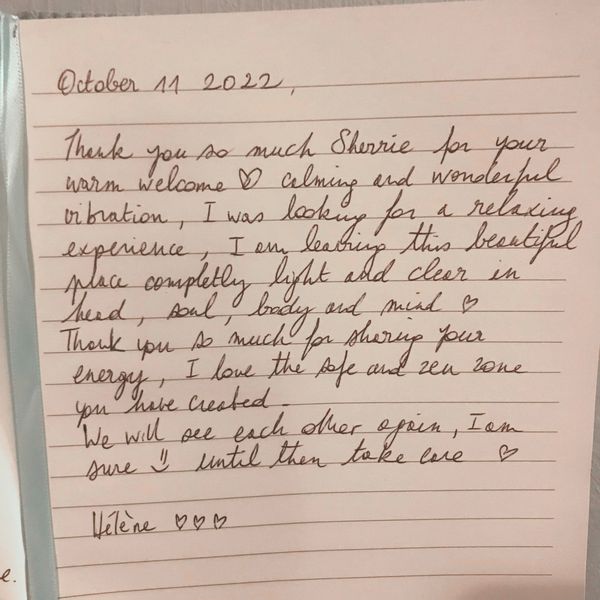 October 11 2022,
Thank you so much Sherrie for your
warm welcome ♡ calming and wonderful
vibration, I was looking for a relaxing
experience, I am leaving this beautiful
place completly light and clear in
head, soul, body and mind ♡
Thank you so much for sharing your
energy, I love the safe and zen zone
you have created.
We will see each other again, I am
sure !! until then take care ♡
Hélène ♡♡♡
e.